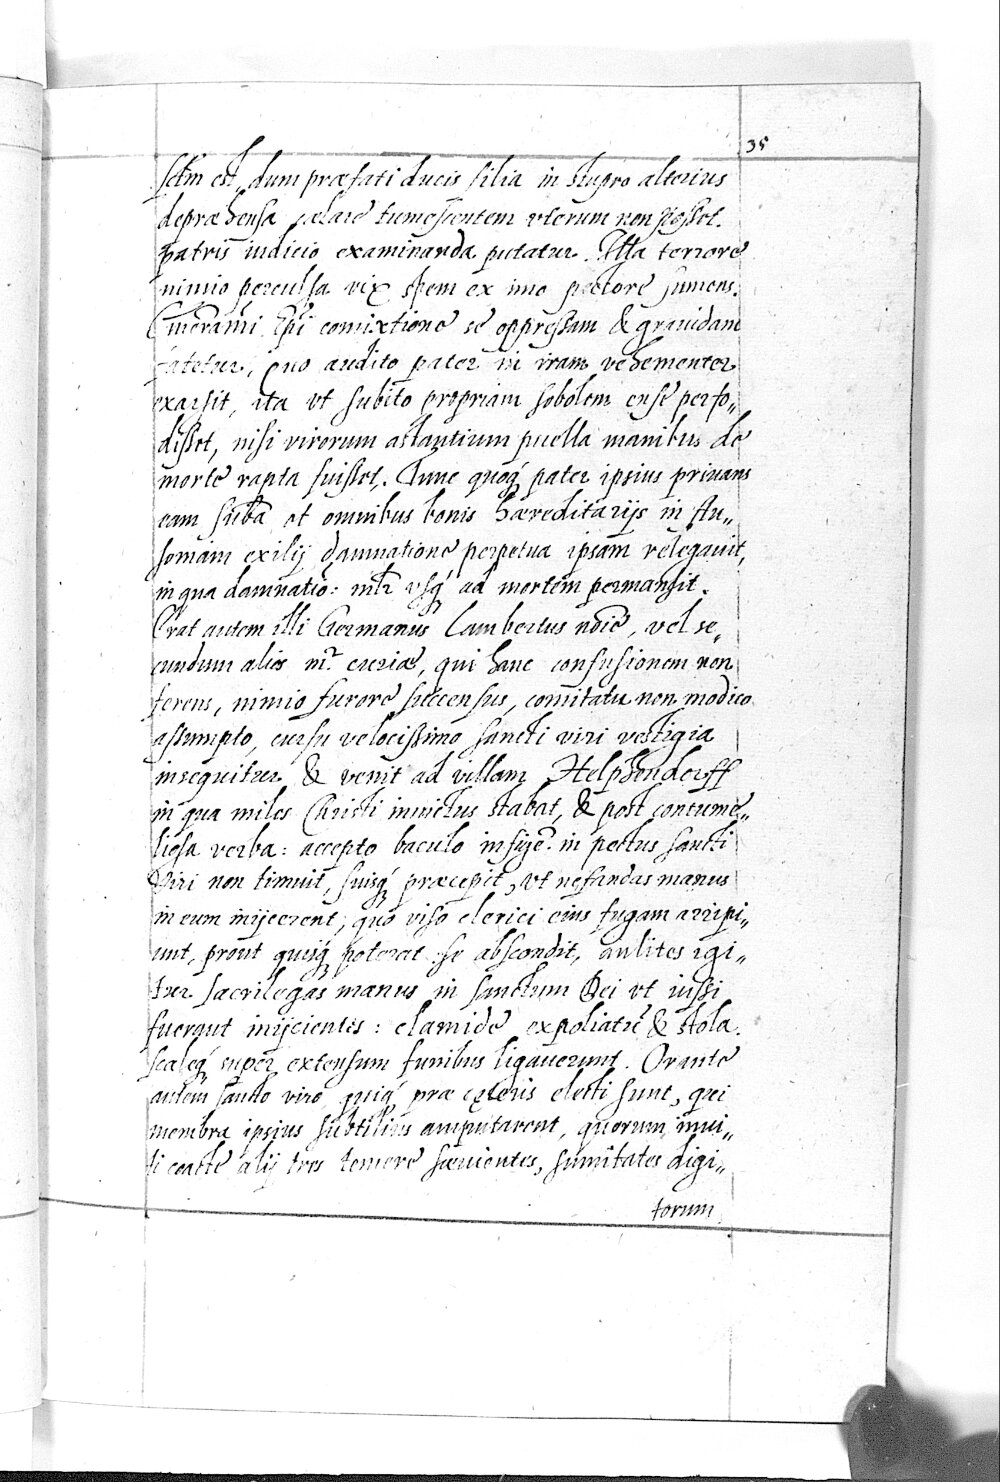 35
sctm est, dum præfati ducis filia in stupro alterius
depræhensa celare tumescentem vterum non posset.
patris iudicio examinanda putatur. Illa terrore
nimio perculsa vix spem ex imo pectore sumens.
Emerami Epi comixtione se oppressam & grauidam
fatetur, Quo audito pater in iram vehementer
exarsit, ita vt subito propriam sobolem ense perfo„
disset, nisi virorum astantium puella manibus de
morte rapta fuisset. Tunc quoq́ pater ipsius priuans
eam suba et omnibus bonis hæreditarijs in Au„
soniam exilij damnatione perpetua ipsam relegauit,
in qua damnatio: mlr vsq́ ad mortem permansit.
Erat autem illi Germanus Lambertus nõie, vel se„
cundum alios mr. curiæ, qui hanc confusionem non
ferens, nimio furore succensus, comitatu non modico
assumpto, cursu velocissimo sancti viri vestigia
insequitur & venit ad villam Helphendorff
in qua miles Christi inuictus stabat, & post contume„
liosa verba: accepto baculo infige. in pectus sancti
Viri non timuit, suisq́ præcepit, vt nefandas manus
in eum inijcerent, quo viso clerici eius fugam arripi„
unt, prout quisq́ poterat se abscondit, aulites igi„
tur sacrilegas manus in sanctum Dei vt iussi
fuerant inijcientes: clamide expoliatũ & stola
scaleq́ super extensum funibus ligauerunt. Orante
autem sancto viro quiq́ præ cęteris electi sunt, qui
membra ipsius subtilius amputarent, quorum inui„
ti coacte alij tres temere sæuientes, sumitates digi„
torum